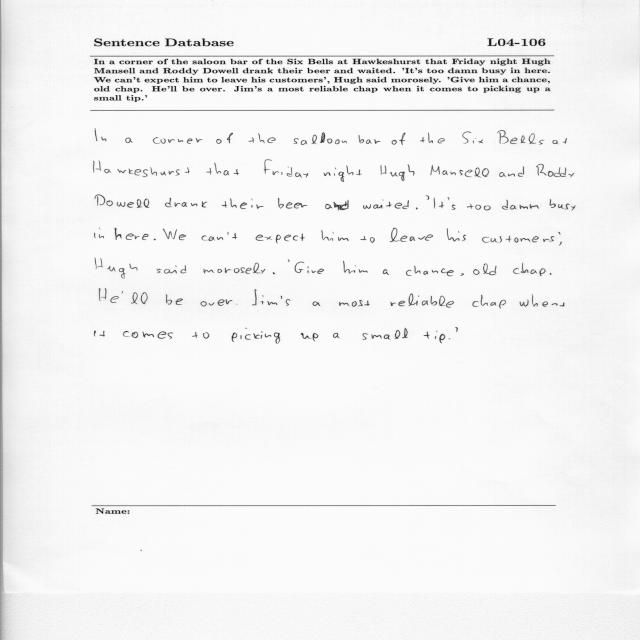 Sentence Database L04-106
In a corner of the saloon bar of the Six Bells at Hawkeshurst that Friday night Hugh
Mansell and Roddy Dowell drank their beer and waited. 'It's too damn busy in here.
We can't expect him to leave his customers', Hugh said morosely. 'Give him a chance,
old chap. He'll be over. Jim's a most reliable chap when it comes to picking up a
small tip.'
In a corner of the salloon bar of the Six Bells at
Hawkeshurst that Friday night Hugh Mansell and Roddy
Dowell drank their beer and waited. 'It's too damn busy
in here. We can't expect him to leave his customers',
Hugh said morosely. 'Give him a chance, old chap.
He'll be over. Jim's a most reliable chap when
it comes to picking up a small tip.'
Name: